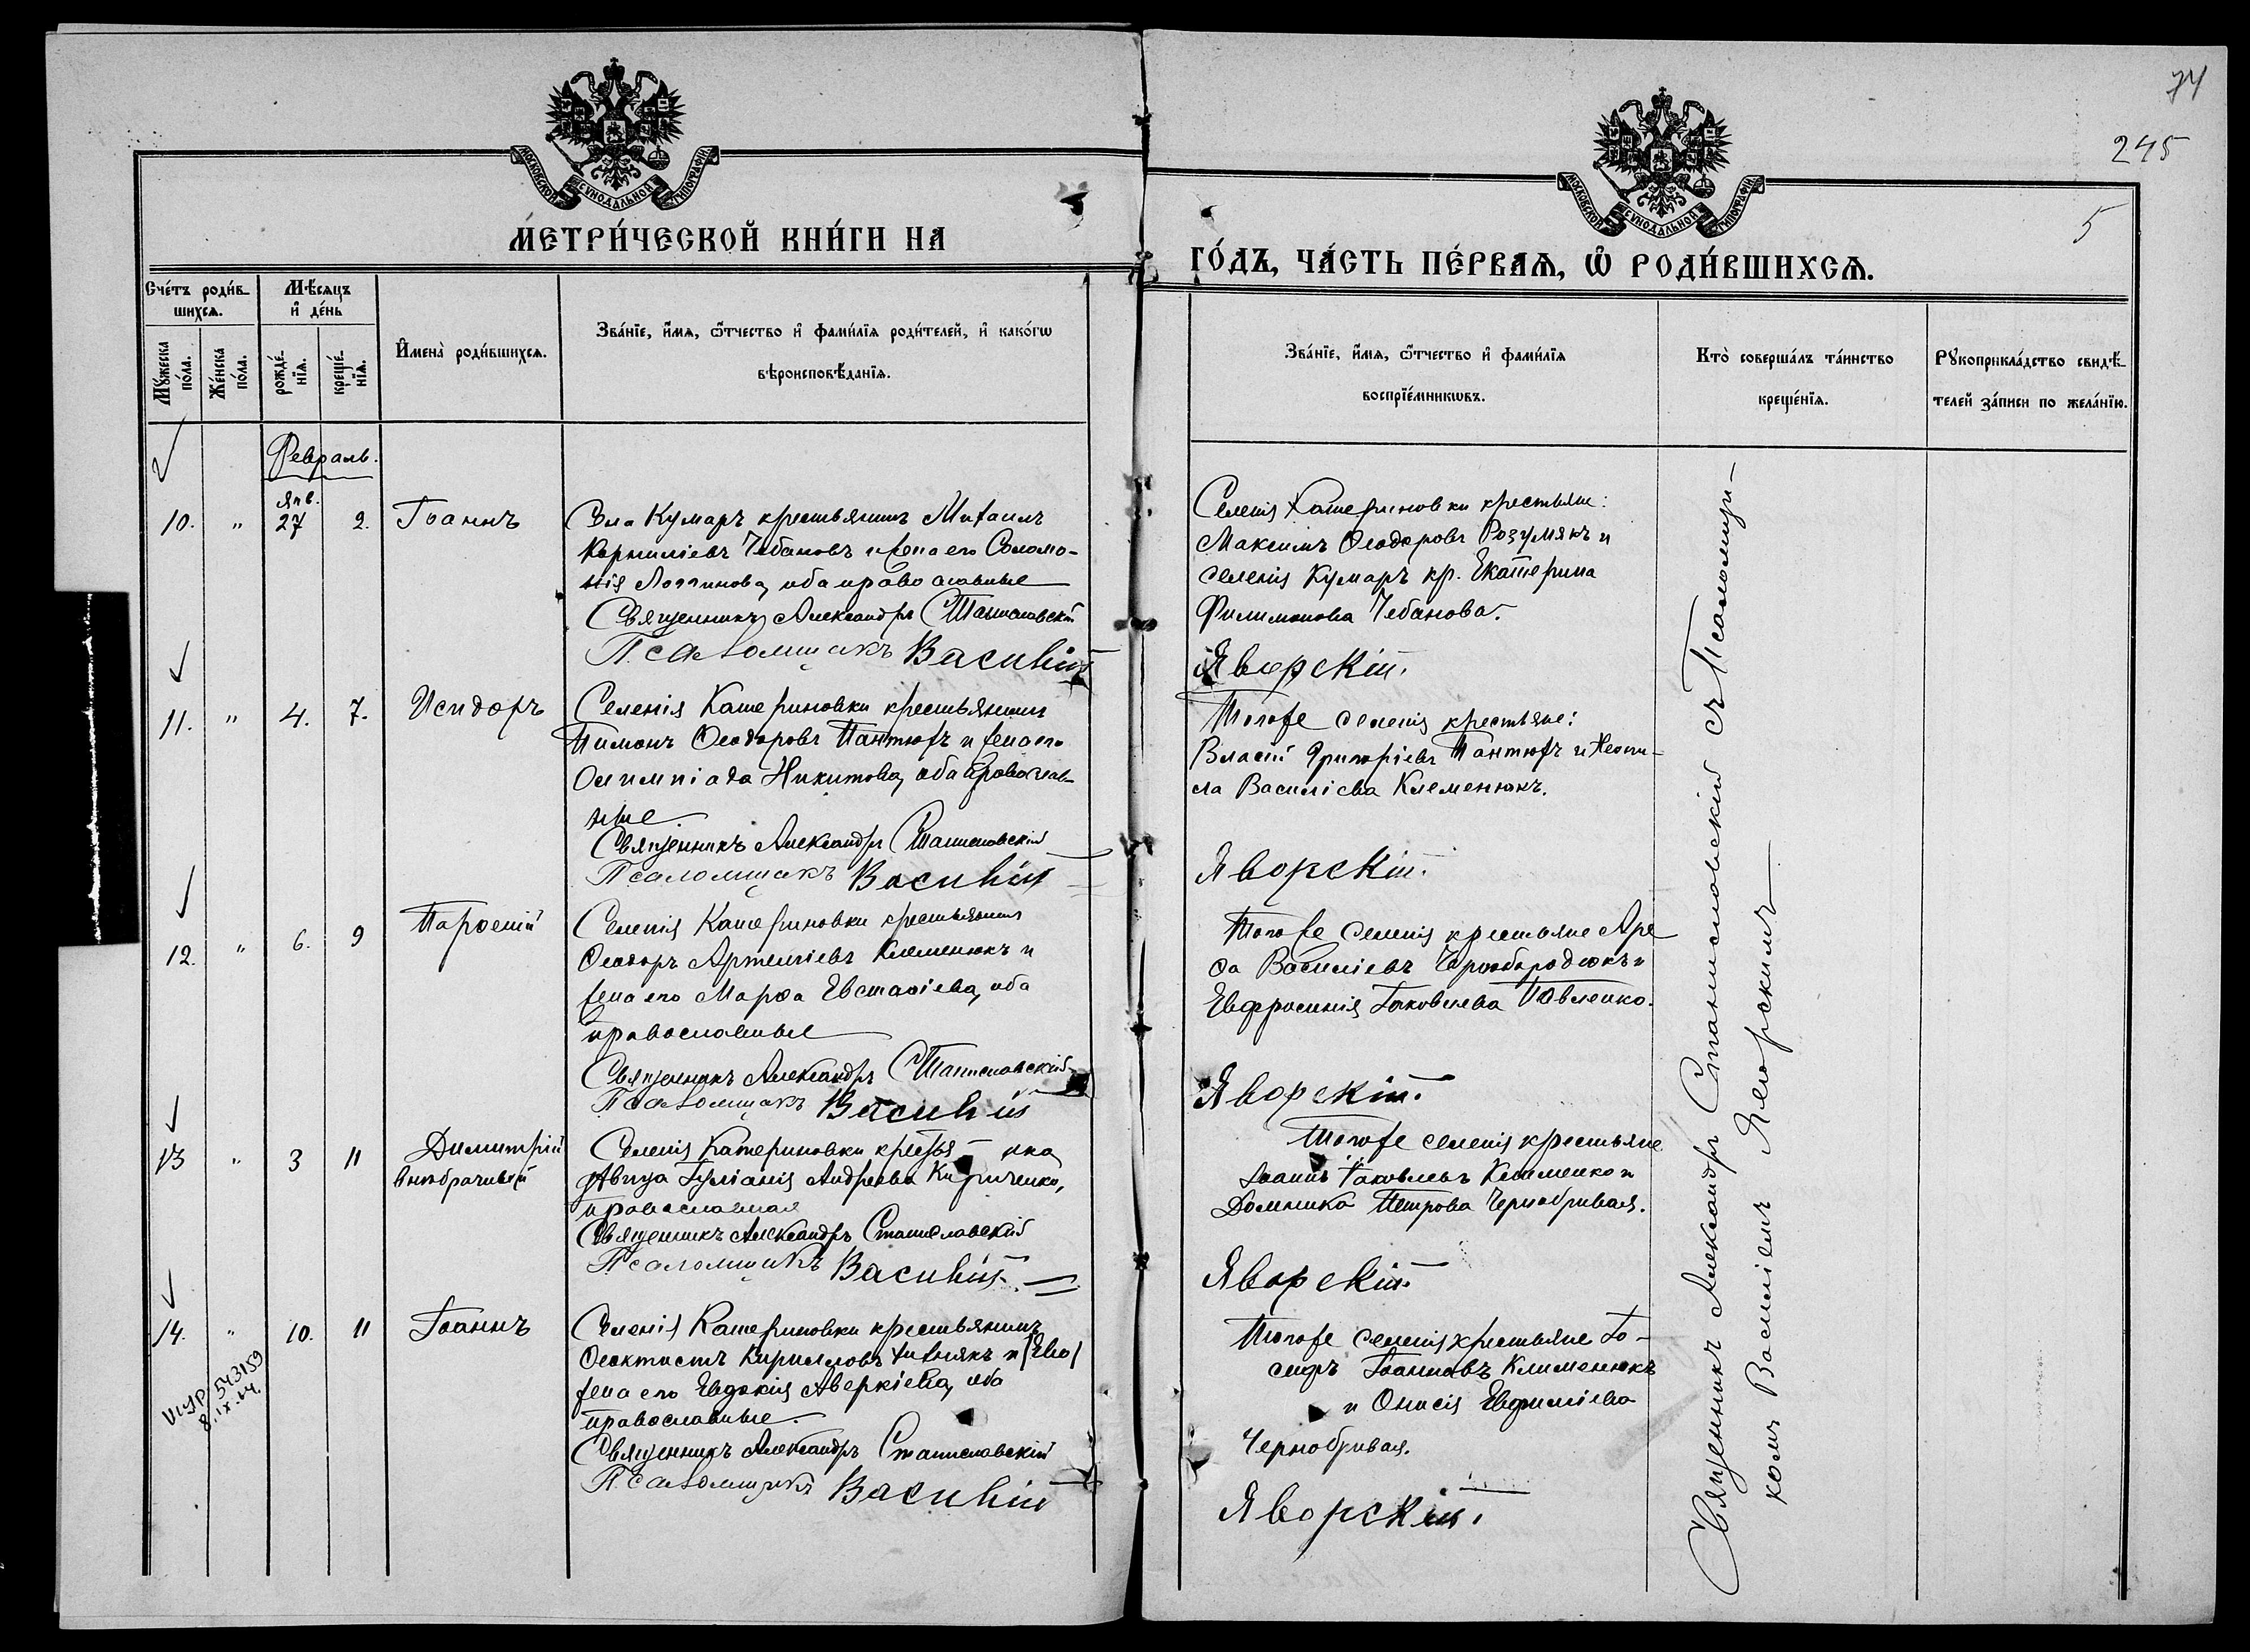 74
245
5
МОСКОВСКОЙ СѴНОДАЛЬНОЙ ТИПОГРАФІИ.
МОСКОВСКОЙ СѴНОДАЛЬНОЙ ТИПОГРАФІИ.
МЕТРИ́ЧЕСКОЙ КНИ́ГИ НА
ГО́ДЪ, ЧА́СТЬ ПЕ́РВАѦ, Ѡ РОДИ́ВШИХСѦ.
Сче́тъ роди́в-
шихсѧ.
Мѣ́сѧцъ
и де́нь
Мꙋ́жеска
по́ла.
Же́нска
по́ла.
рожде́-
нїѧ.
креще́-
нїѧ.
Имена̀ роди́вшихсѧ.
Зва́нїе, и́мѧ, ѻ́тчество и фами́лїѧ роди́телей, и како́гѡ
вѣроисповѣ́данїѧ.
Зва́нїе, и́мѧ, ѻ́тчество и фами́лїѧ
воспрїе́мникѡвъ.
Кто̀ соверша́лъ та́инство
креще́нїѧ.
Рꙋкоприкла́дство свидѣ́-
телей за́писи по жела́нїю.
Февраль.
Янв.
10. " 27 2. Іоаннъ
Села Кумаръ крестьянинъ Михаилъ
Корниліевъ Чебановъ и жена его Соломо-
нія Логгинова, оба православные
Священникъ Александръ Станиславскій
Псаломщикъ Василій
Селенія Катериновки крестьяне:
Максимъ Ѳеодоровъ Розумякъ и
селенія Кумаръ кр. Екатерина
Филимонова Чебанова.
Яворскій.
11. " 4. 7. Исидоръ
Селенія Катериновки крестьянинъ
Тимонъ Ѳеодоровъ Пантюхъ и жена его
Олимпіада Никитова, оба православ-
ные
Священникъ Александръ Станиславскій
Псаломщикъ Василій
Того же селенія крестьяне:
Власій Григоріевъ Пантюхъ и Неони-
ла Василіева Клеменюкъ.
Яворскій.
12. " 6. 9 Парѳеній
Селенія Катериновки крестьянинъ
Ѳеодоръ Артеміевъ Клеменюкъ и
жена его Марѳа Евстаѳіева, оба
православные
Священникъ Александръ Станиславскій
Псаломщикъ Василій
Того же селенія крестьяне Аре
ѳа Василіевъ и
Евфросинія Іаковлева Павленко.
Яворскій.
13 " 3 11 Димитрій
внѣбрачный
Селенія Катериновки крестья- нка
дѣвица Іуліанія Андреева Кириченко,
православная
Священникъ Александръ Станиславскій
Псаломщикъ Василій
Того же селенія крестьяне
Іоаннъ Іаковлевъ Клименко и
Домника Петрова Чернобривая.
Яворскій
14. " 10. 11 Іоаннъ
Селенія Катериновки крестьянинъ
Ѳеоктистъ Кирилловъ Хижнякъ и
жена его Евдокія Аверкіева, оба
православные.
Священникъ Александръ Станиславскій
Псаломщикъ Василій
Того же селенія крестьяне Іо-
сифъ Іоанновъ Клименюкъ
и Онисія Евфиміева
Чернобривая.
Яворскій.
543159
8.IX.64.
Священникъ Александръ Станиславскій съ Псаломщи-
комъ Василіемъ Яворскимъ